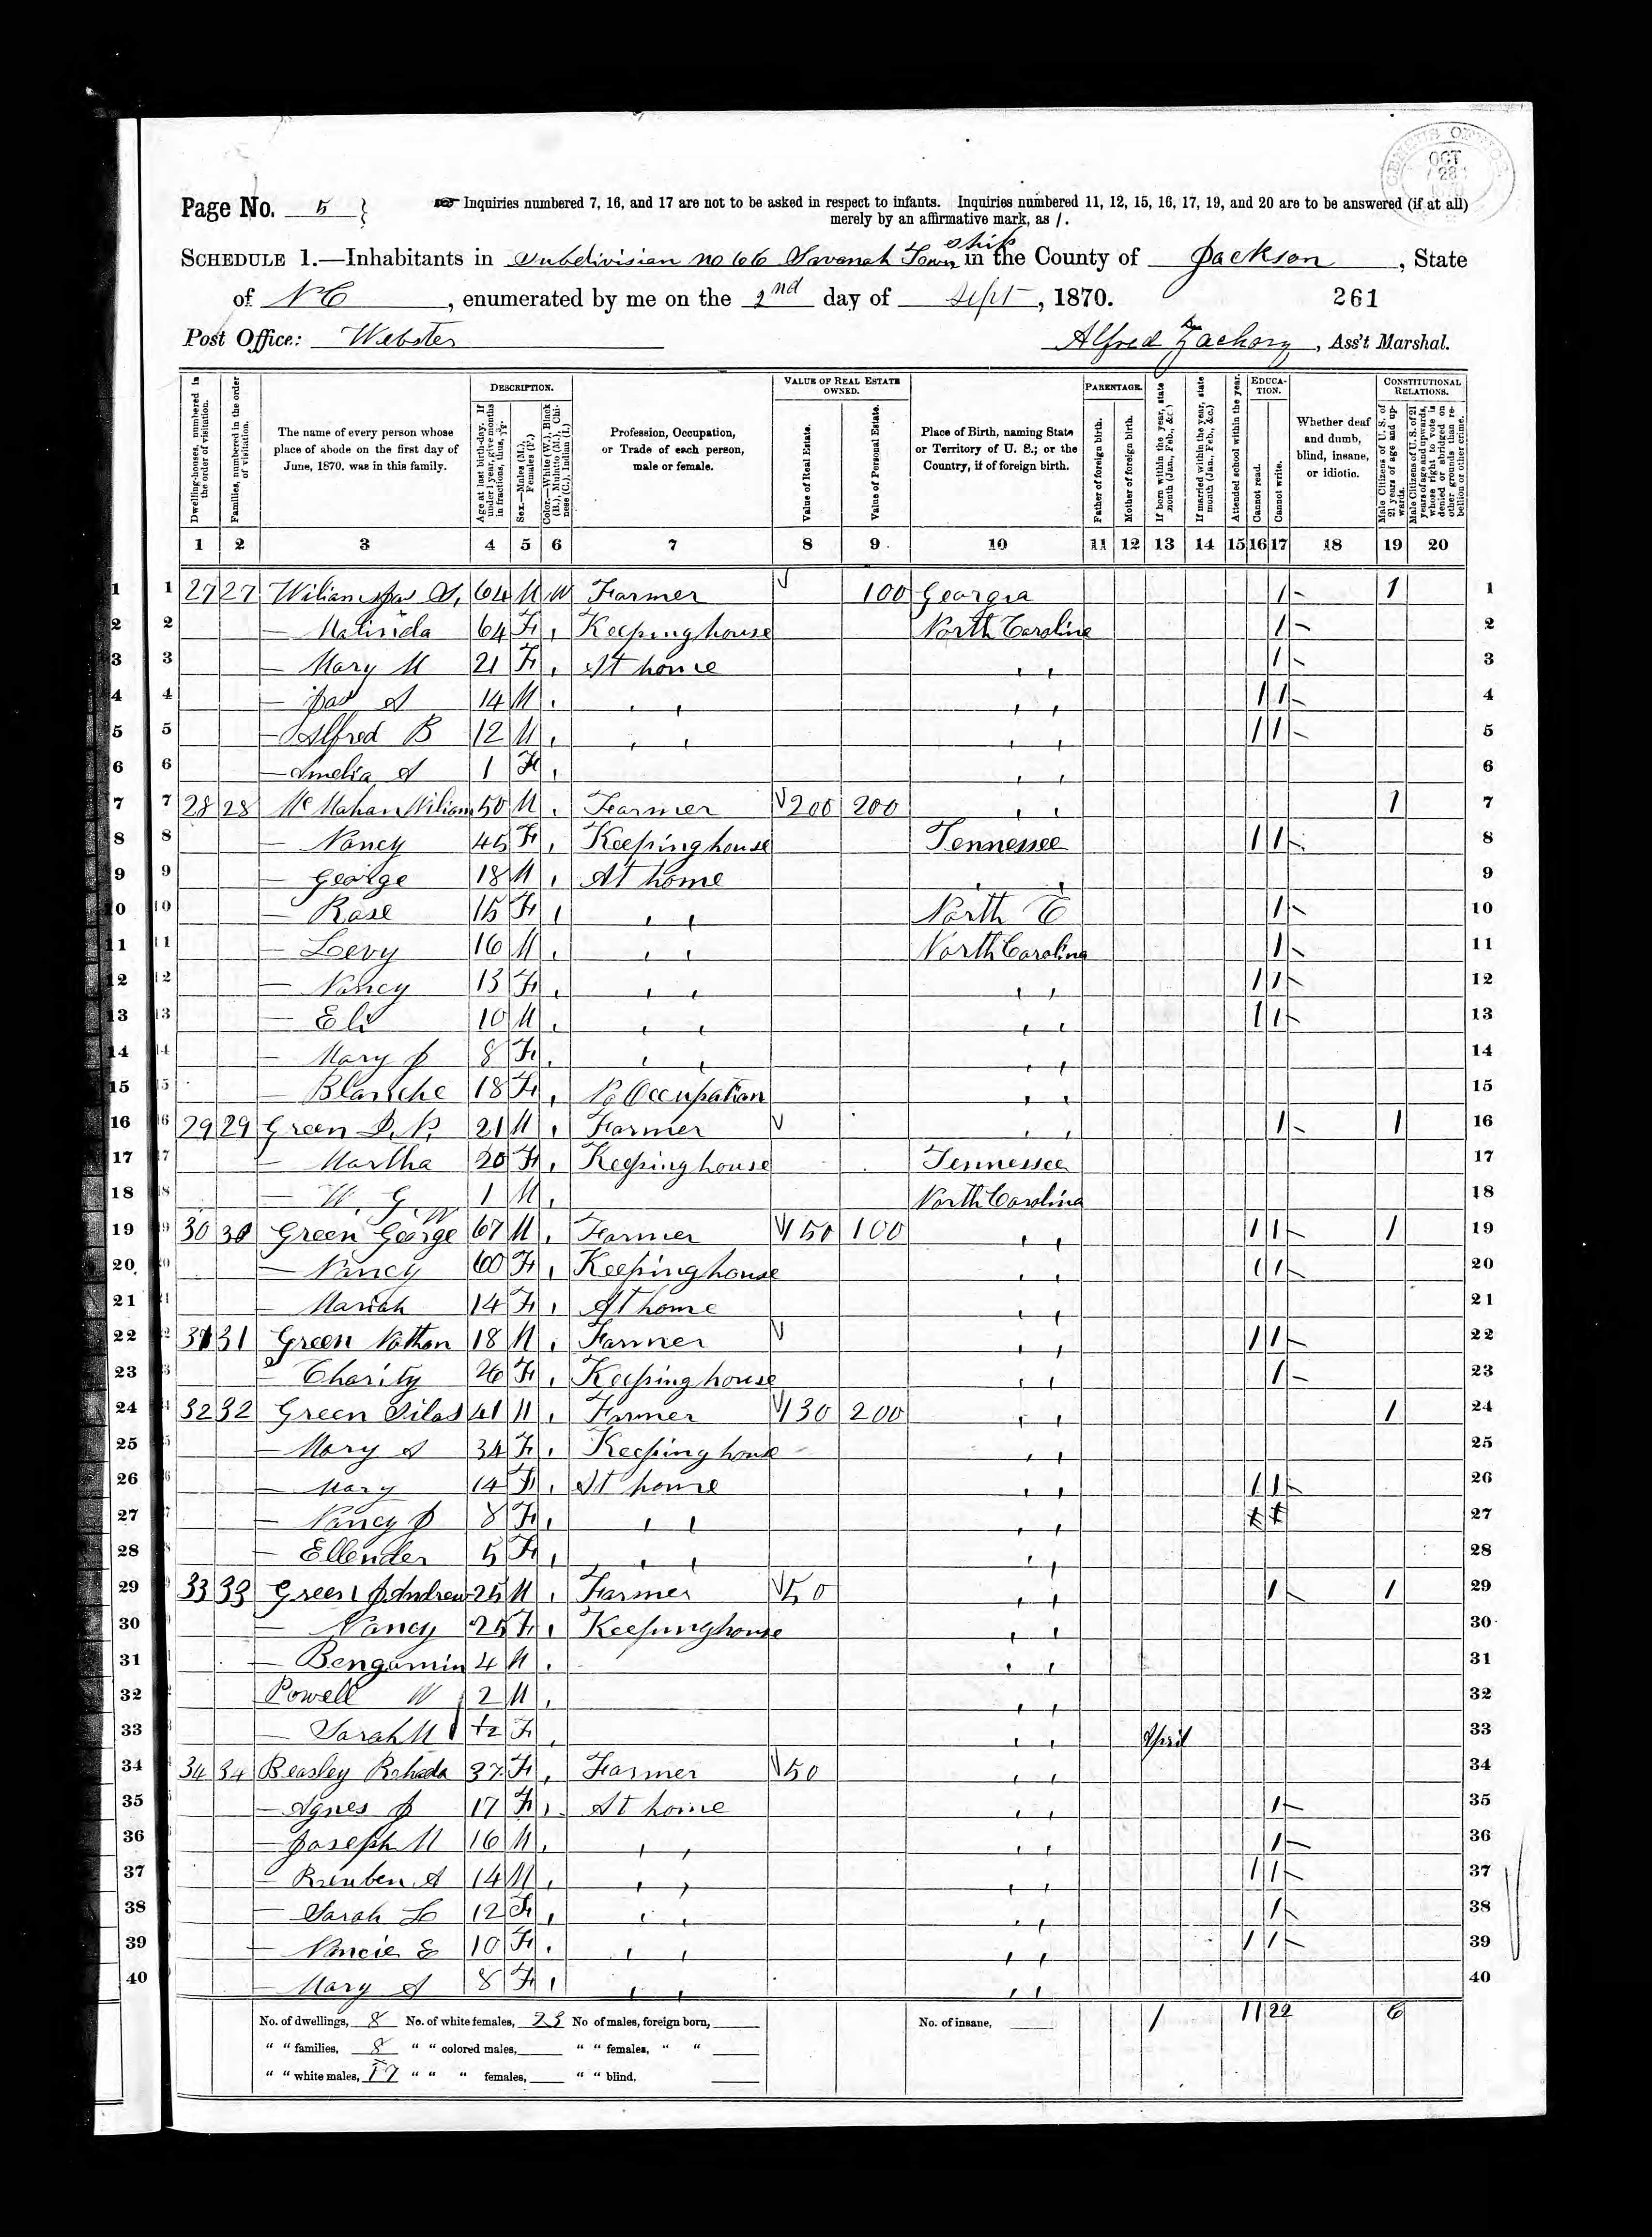 CENSUS OF
OCT
28
Page No. 5
Inquiries numbered 7, 16, and 17 are not to be asked in respect to infants. Inquiries numbered 11, 12, 15, 16, 17, 19, and 20 are to be answered (if at all)
merely by an affirmative mark, as /.
SCHEDULE 1.—Inhabitants in Subdivision no 66 Savanah Township in the County of Jackson, State
of N C, enumerated by me on the 2nd day of Sept, 1870. 261
Post Office: Webster Alfred Zachory, Ass't Marshal.
Dwelling-houses, numbered in the order of visitation.
Families, numbered in the order of visitation.
The name of every person whose place of abode on the first day of June, 1870, was in this family.
DESCRIPTION.
Age at last birth-day. If under 1 year, give months in fractions, thus, 3/12.
Sex.—Males (M.), Females (F.)
Color.—White (W.), Black (B.), Mulatto (M.), Chinese (C.), Indian (I.)
Profession, Occupation, or Trade of each person, male or female.
VALUE OF REAL ESTATE OWNED.
Value of Real Estate.
Value of Personal Estate.
Place of Birth, naming State or Territory of U. S.; or the Country, if of foreign birth.
PARENTAGE.
Father of foreign birth.
Mother of foreign birth.
If born within the year, state month (Jan., Feb., &c.)
If married within the year, state month (Jan., Feb., &c.)
Attended school within the year.
EDUCATION.
Cannot read.
Cannot write.
Whether deaf and dumb, blind, insane, or idiotic.
CONSTITUTIONAL RELATIONS.
Male Citizens of U. S. of 21 years of age and upwards.
Male Citizens of U. S. of 21 years of age and upwards, whose right to vote is denied or abridged on other grounds than rebellion or other crime.
1 2 3 4 5 6 7 8 9 10 11 12 13 14 15 16 17 18 19 20
1 1 27 27 Wiliams Jas 64 M W Farmer 100 Georgia 1 1 1
2 2 — Malinda 64 F , Keeping house North Carolina 1 2
3 3 — Mary M 21 F , At home , , 1 3
4 4 — Jas A 14 M , , , , , 1 1 4
5 5 — Alfred B 12 M , , , , , 1 1 5
6 6 — Amelia A 1 F , , , 6
7 7 28 28 McMahan Wiliam 50 M , Farmer 200 200 , , 1 7
8 8 — Nancy 45 F , Keeping house Tennessee 1 1 8
9 9 — George 18 M , At home , , 9
10 10 — Rose 15 F , , , North C 1 10
11 11 — Levy 16 M , , , North Carolina 1 11
12 12 — Nancy 13 F , , , , , 1 1 12
13 13 — Eli 10 M , , , , , 1 1 13
14 14 — Mary J 8 F , , , , , 14
15 15 — Blansche 18 F , No Occupation , , 15
16 16 29 29 Green 21 M , Farmer , , 1 1 16
17 17 — Martha 20 F , Keeping house Tennessee 17
18 18 — W. G. 1 M , North Carolina 18
19 19 30 30 Green George W 67 M , Farmer 150 100 , , 1 1 1 19
20 20 — Nancy 60 F , Keeping house , , 1 1 20
21 21 — Mariah 14 F , At home , , 21
22 22 31 31 Green Nathan 18 M , Farmer , , 1 1 22
23 23 — Charity 26 F , Keeping house , , 1 23
24 24 32 32 Green Silas 41 M , Farmer 130 200 , , 1 24
25 25 — Mary A 34 F , Keeping house , , 25
26 26 — Mary 14 F , At home , , 1 1 26
27 27 — Nancy J 8 F , , , , , 27
28 28 — Ellender 5 F , , , , , 28
29 33 33 Green J Andrew 25 M , Farmer 50 , , 1 1 29
30 — Nancy 25 F , Keeping house , , 30
31 — Bengamin 4 M , , , 31
32 Powell W 2 M , , , 32
33 — Sarah M F , , , April 33
34 34 34 Beasley Rohada 37 F , Farmer 50 , , 34
35 — Agnes J 17 F , At home , , 1 35
36 — Joseph M 16 M , , , , , 1 36
37 — Reuben A 14 M , , , , , 1 1 37
38 — Sarah L 12 F , , , , , 1 38
39 — Nancie E 10 F , , , , , 1 1 39
40 — Mary A 8 F , , , , , 40
No. of dwellings, 8 No. of white females, 23 No of males, foreign born, No. of insane, 1 11 22 6
" " families, 8 " " colored males, " " females, " "
" " white males, 17 " " " females, " " blind,